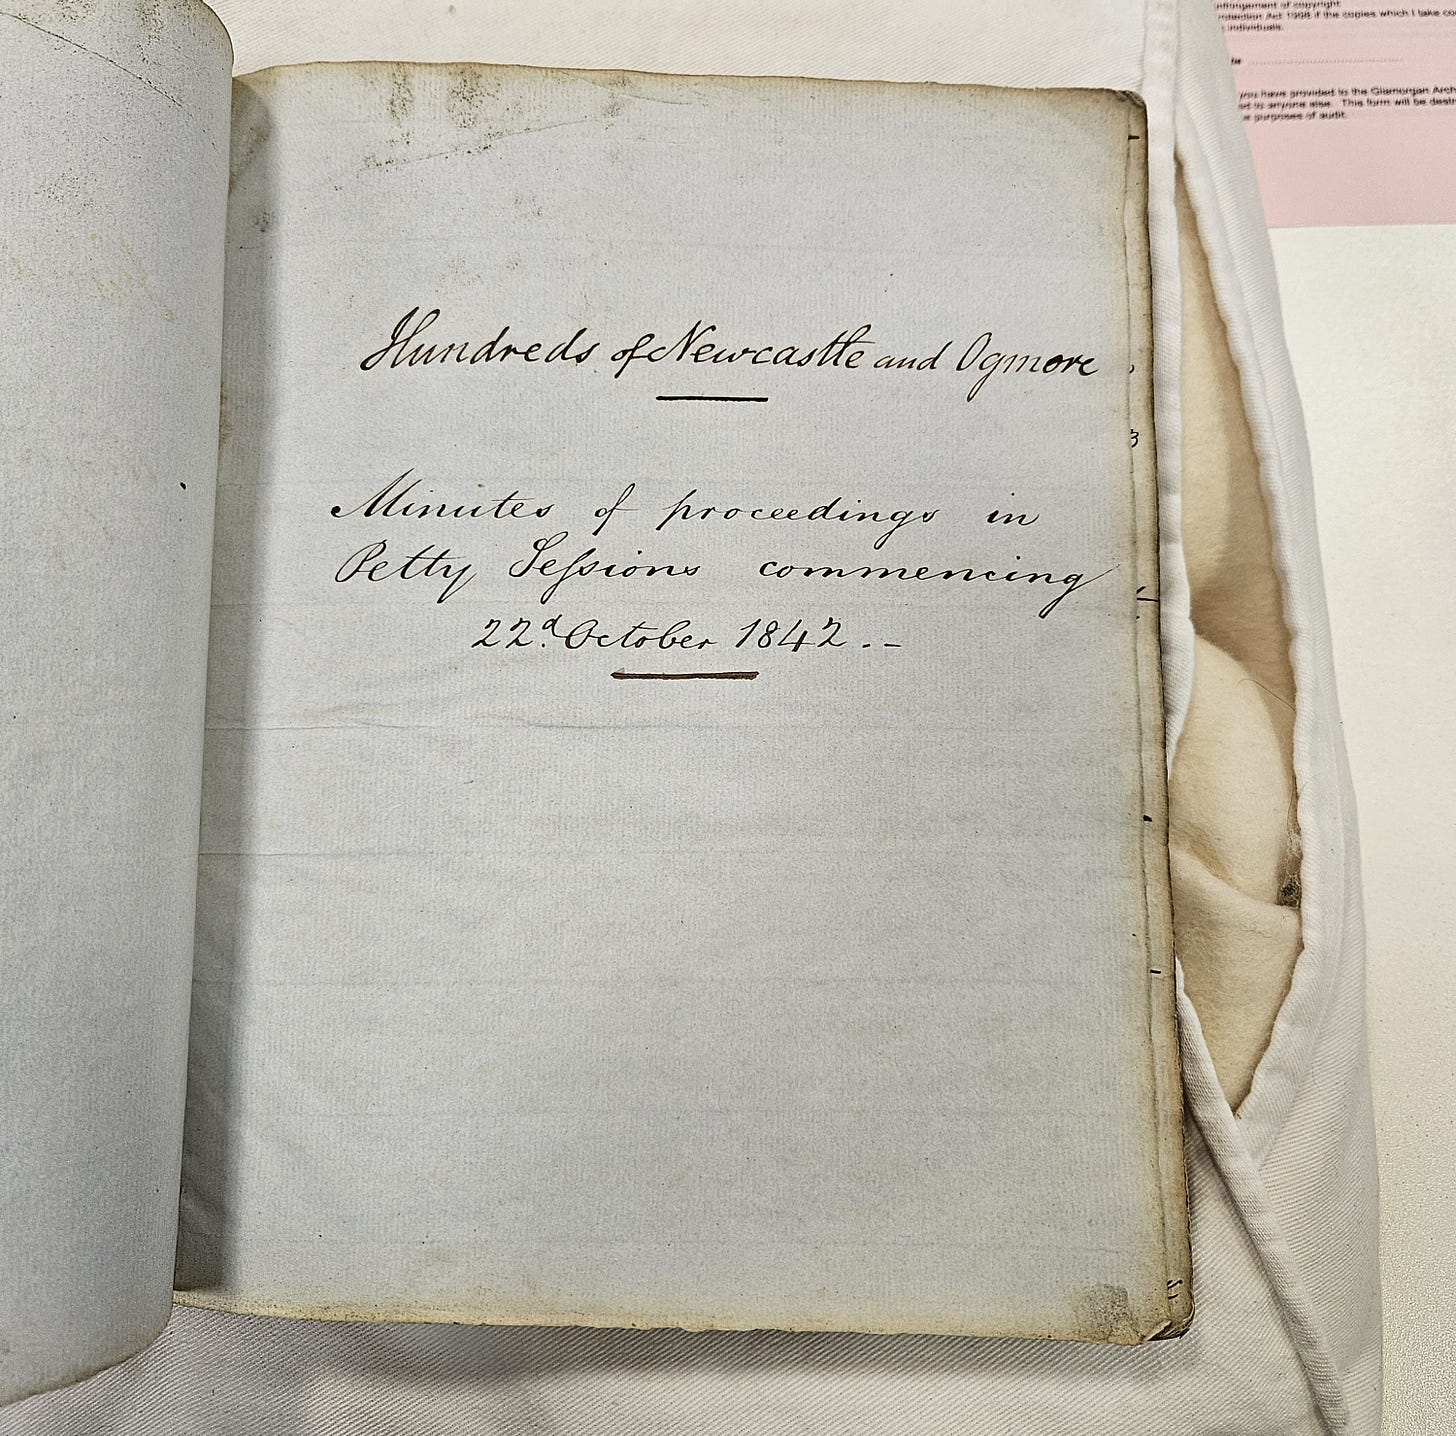 Hundreds of Newcastle and Ogmore
Minutes of proceedings in
Petty Seſsions commencing
22d. October 1842. --
3
infringement of copyright
rotection Act 1998 if the copies which I take
individuals.
you have provided to the Glamorgan Arch
to anyone else. This form will be dest
purposes of audit.